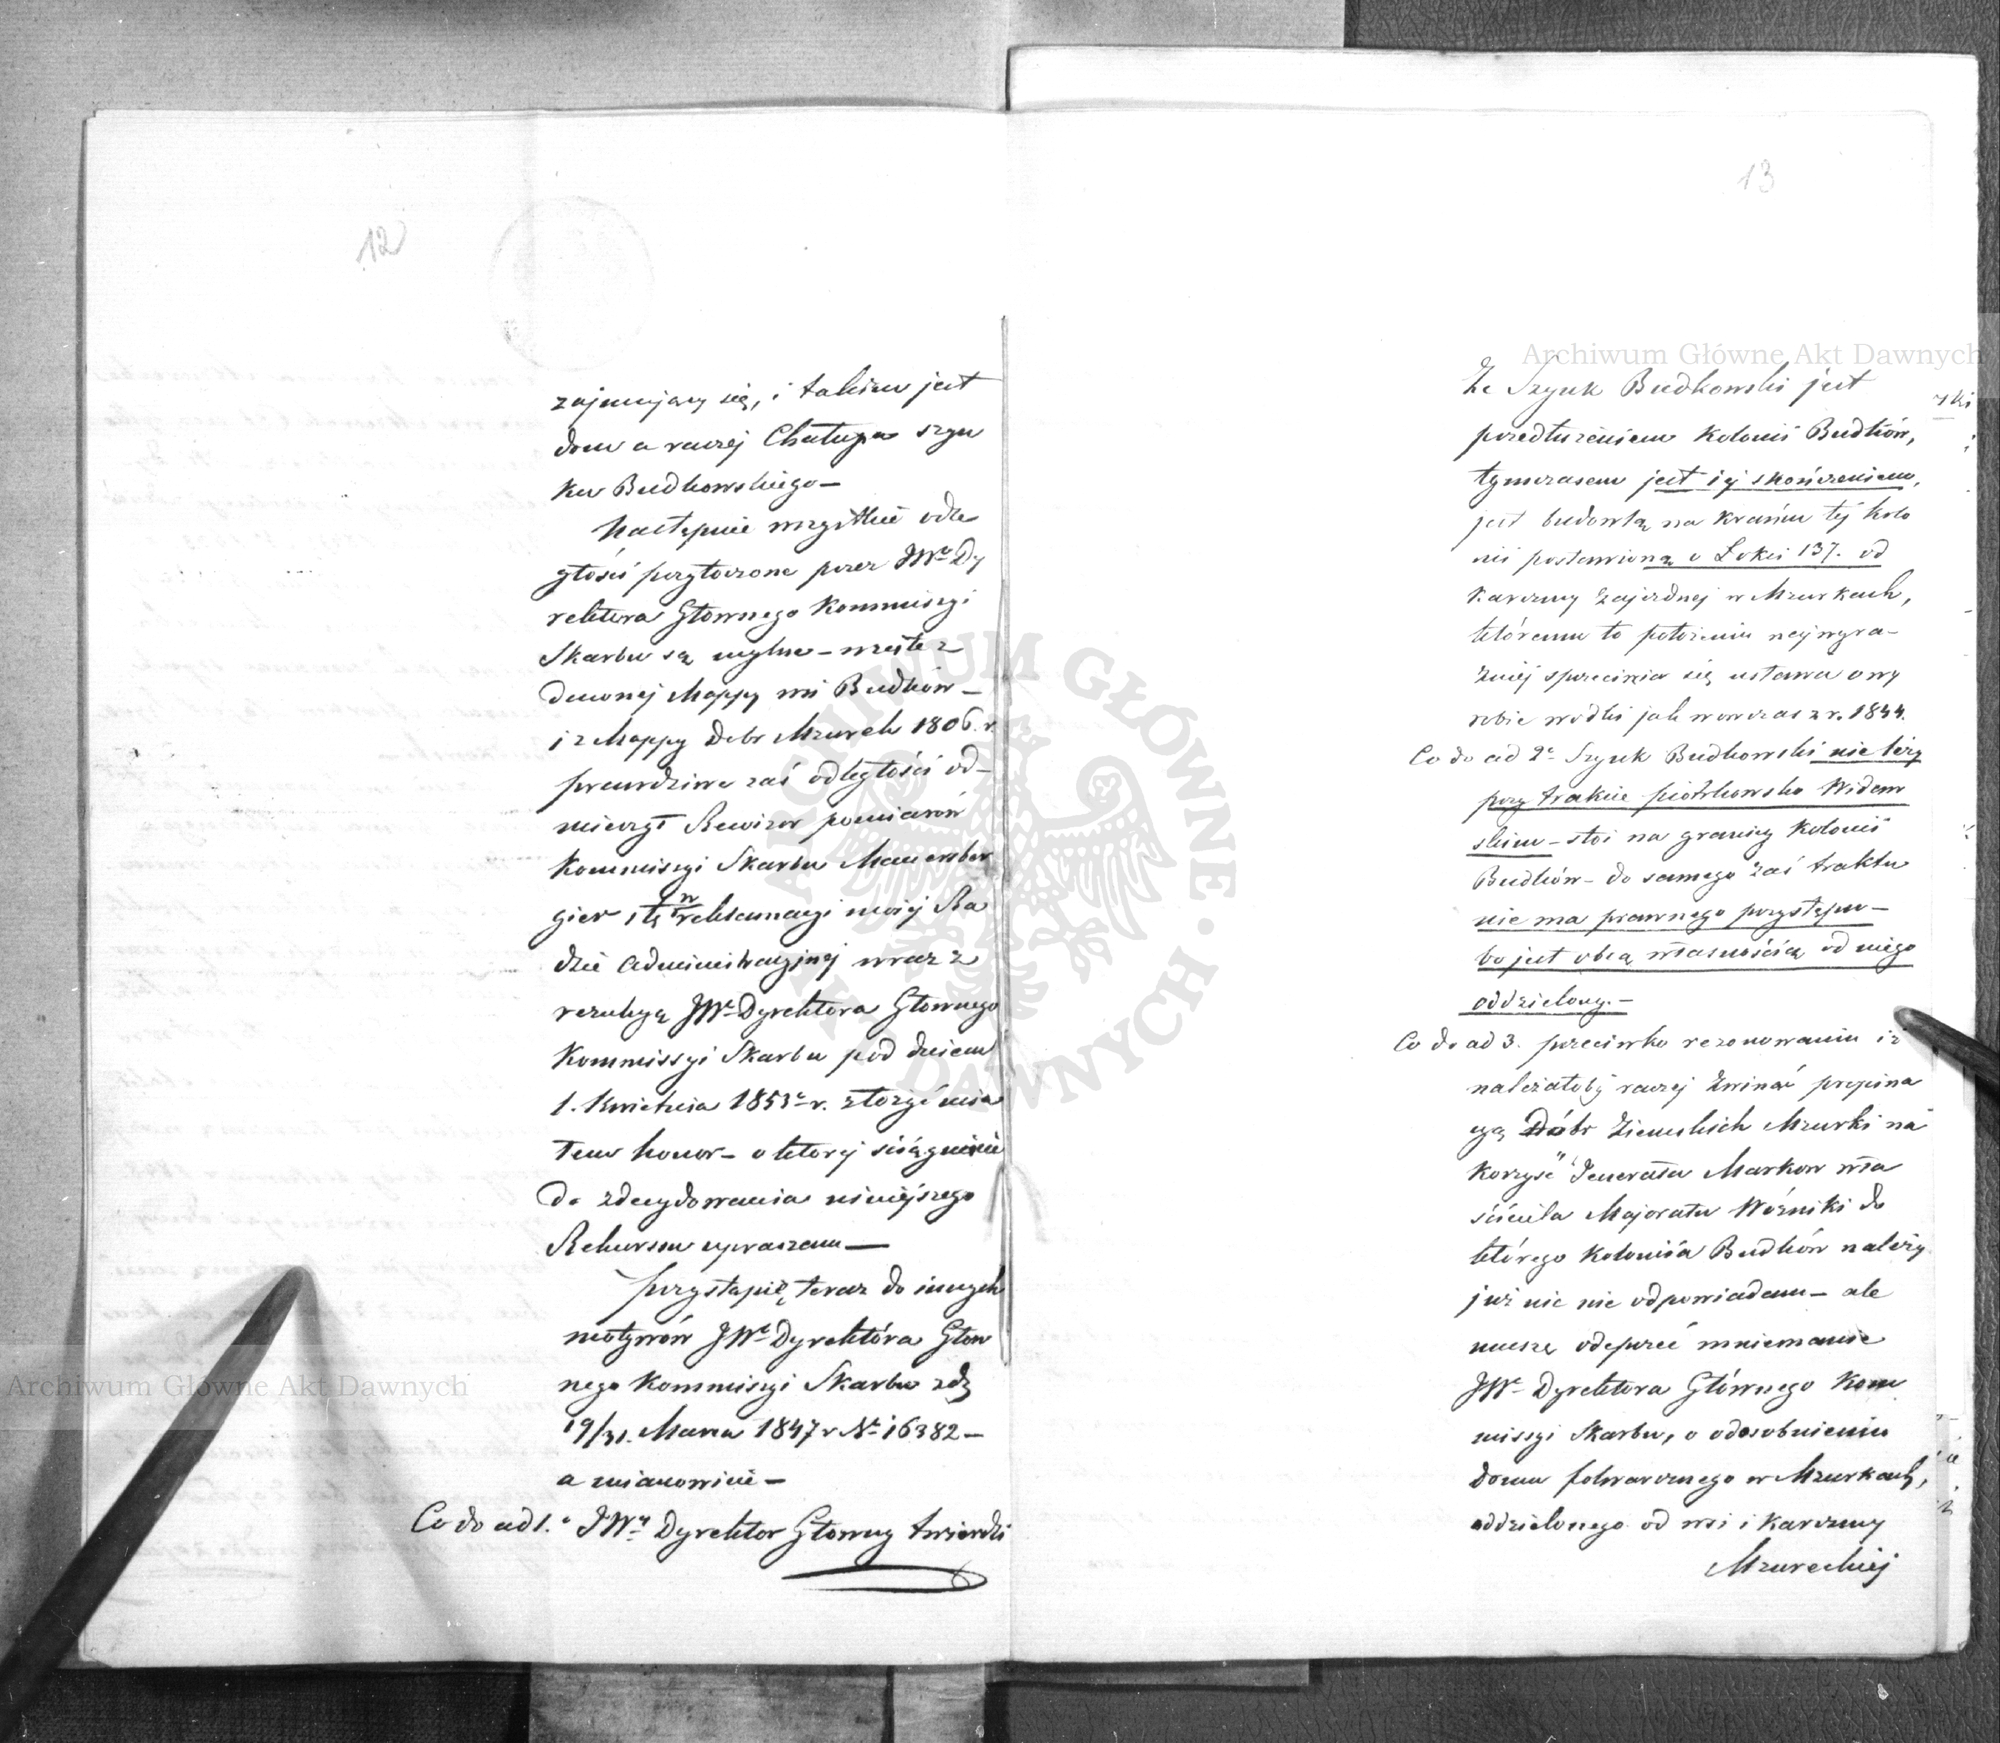 12
zajmujący się, i takim jest
dom a raczej Chałupa szyn
ku Budkowskiego —
Następnie wszystkie odle
głości przytoczone przez JWo Dy
rektora Głownego Kommissyi
Skarbu są mylne — wzięte z
dawnej Mappy wsi Budków —
i z Mappy Dobr Mzurek 1806. r.
prawdziwe zaś odległości od-
mierzył Rewizor pomiarów
Kommissyi Skarbu
gier i tę reklamacyi mojej Ra
dzie Administracyjnej wraz z
rezulcyą JWo Dyrektora Głownego
Kommissyi Skarbu pod dniem
1. Kwietnia 1853 r. złożyć mia
łem honor — o ktorej sciągnienie
do zdecydowania niniejszego
Rekursu upraszam —
Przystąpię teraz do innych
motywów JWo Dyrektóra Głow
nego Kommissyi Skarbu z d
19/31. Marca 1847 r No 16382 —
a mianowicie —
Co do ad 1.o JWy Dyrektor Głowny twierdzi
13
Że Szynk Budkowski jest
przedłużeniem Kolonii Budków,
tymczasem jest iej skończeniem,
jest budowlą na krańcu tej kolo
nii postawioną o Łokci 137. od
Karczmy Zajezdnej w Mzurkach,
któremu to położeniu najwyra-
źniej sprzeciwia się ustawa o wy
robie wódki jak wowczas z r. 1844.
Co do ad 2o Szynk Budkowski nie leży
przy trakcie piotrkowsko Widaw
skim — stoi na granicy Kolonii
Budków — do samego zaś traktu
nie ma prawnego przystępu —
bo jest obcą własnością od niego
oddzielony. —
Co do ad 3. przeciwko rezonowaniu iż
należałoby raczej zwinąć propina
cyą Dóbr Ziemskich Mzurki na
korzyść Jenerała Markow wła
ściciela Majoratu Woźniki do
którego Kolonia Budków należy
już nic nie odpowiadam — ale
muszę odeprzeć mniemanie
JWo Dyrektora Głównego Kom
missyi Skarbu, o odosobnieniu
domu folwarcznego w Mzurkach,
oddzielonego od wsi i Karczmy
Mzureckiej
Archiwum Główne Akt Dawnych
Archiwum Główne Akt Dawnych
ARCHIWUM GŁÓWNE · AKT DAWNYCH ·